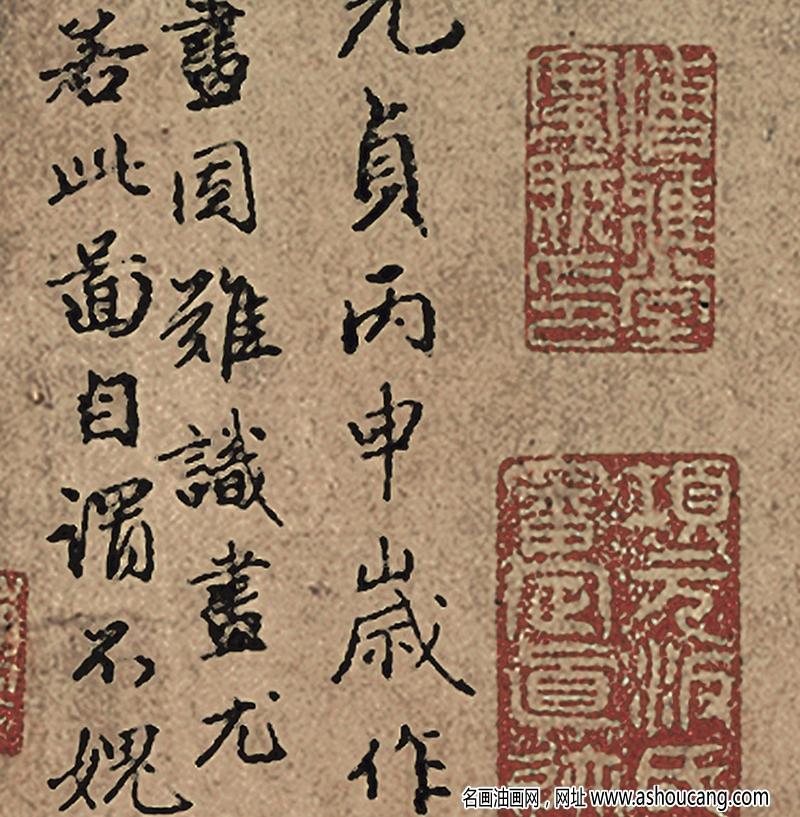 元貞丙申歲作
畫固難識畫尤
若此圖自謂不愧
名画油画网，网址 www.ashoucang.com